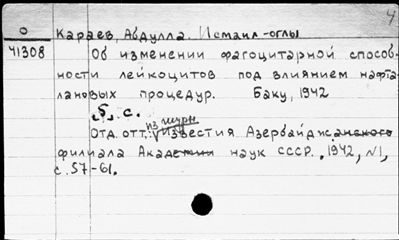 4
О Караев, Абдулла Исмаил-оглы
41308 Об изменении фагоцитарной способ-
ности лейкоцитов под влиянием нафта-
лановых процедур. Баку, 1942
5 с.
из журн.
Отд. отт.: Известия Азербайджанского
филиала Академии наук СССР, 1942, №1,
с. 57-61.